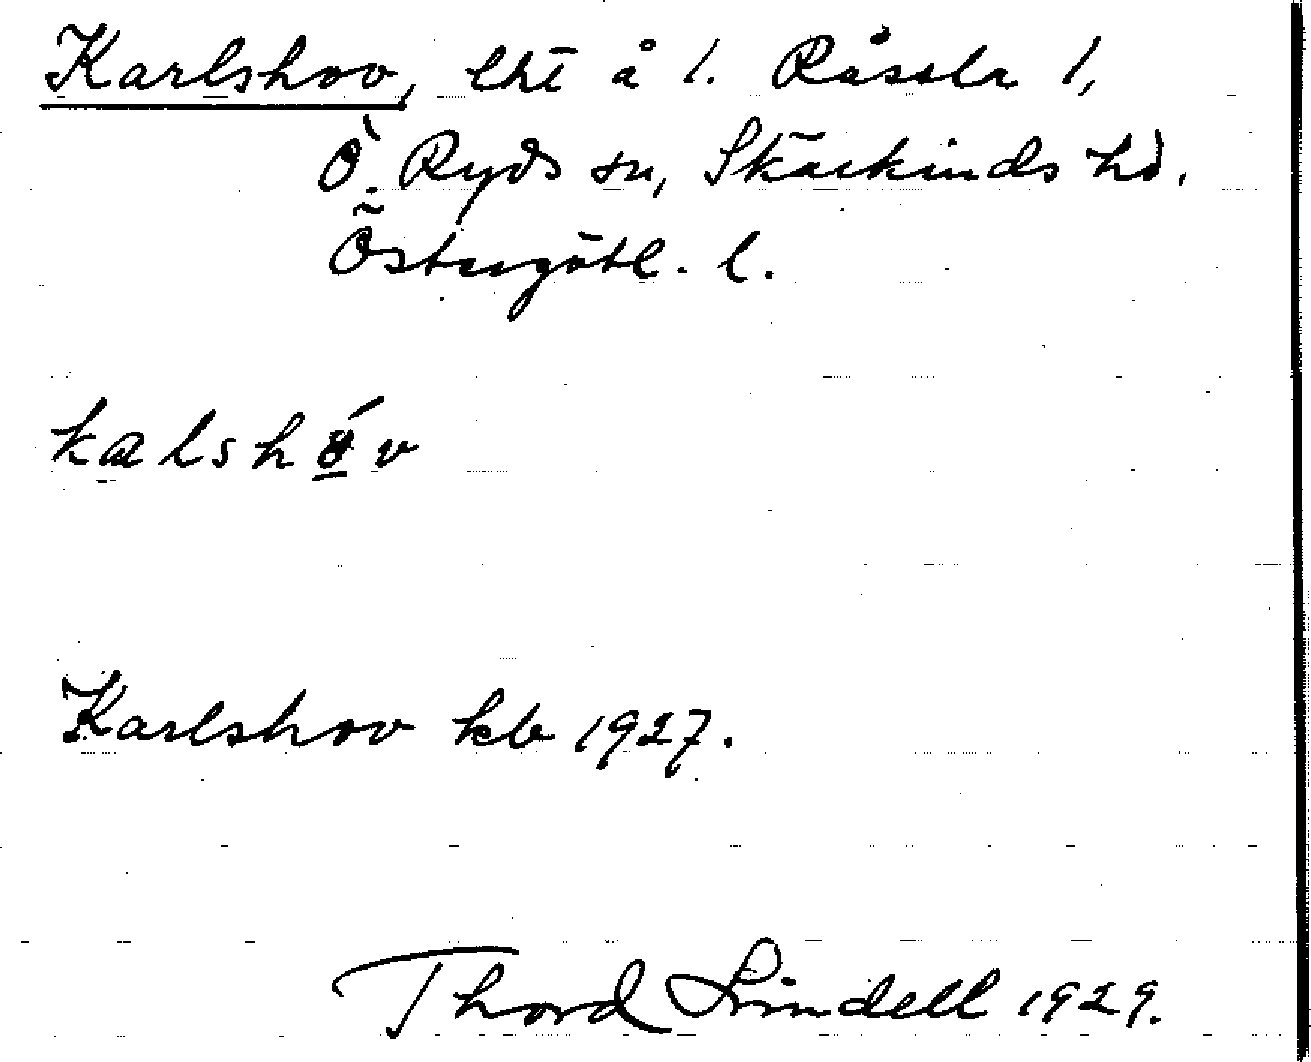 Karlshov, lht å 1. Råssla 1,
Ö. Ryds sn, Skärkinds hd.
Östergötl. l.
kalshóv
Karlshov kb 1927.
Thord Lindell 1929.